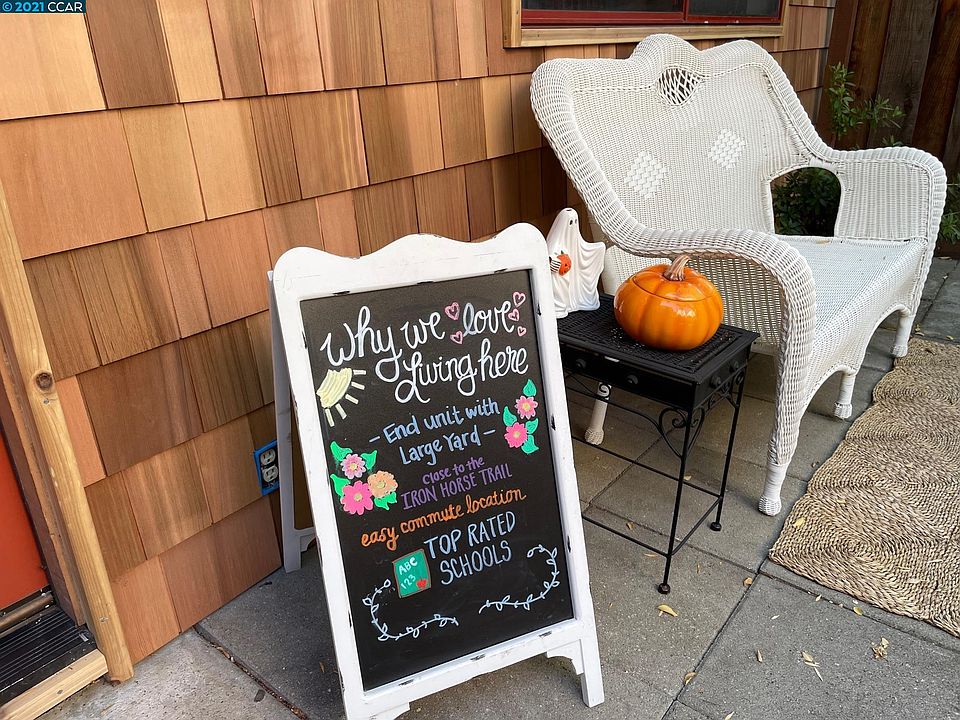 © 2021 CCAR
Why we love
Living here
- End unit with
Large Yard -
close to the
IRON HORSE TRAIL
easy commute location
TOP RATED
SCHOOLS
ABC
123